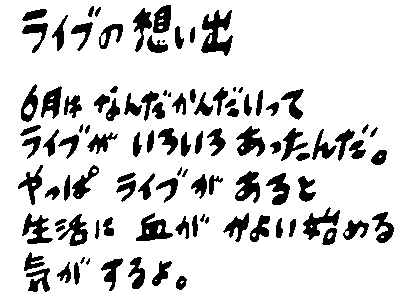 ライブの想い出
6月は なんだかんだいって
ライブが いろいろ あったんだ。
やっぱ ライブが あると
生活に 血が かよい始める
気が するよ。